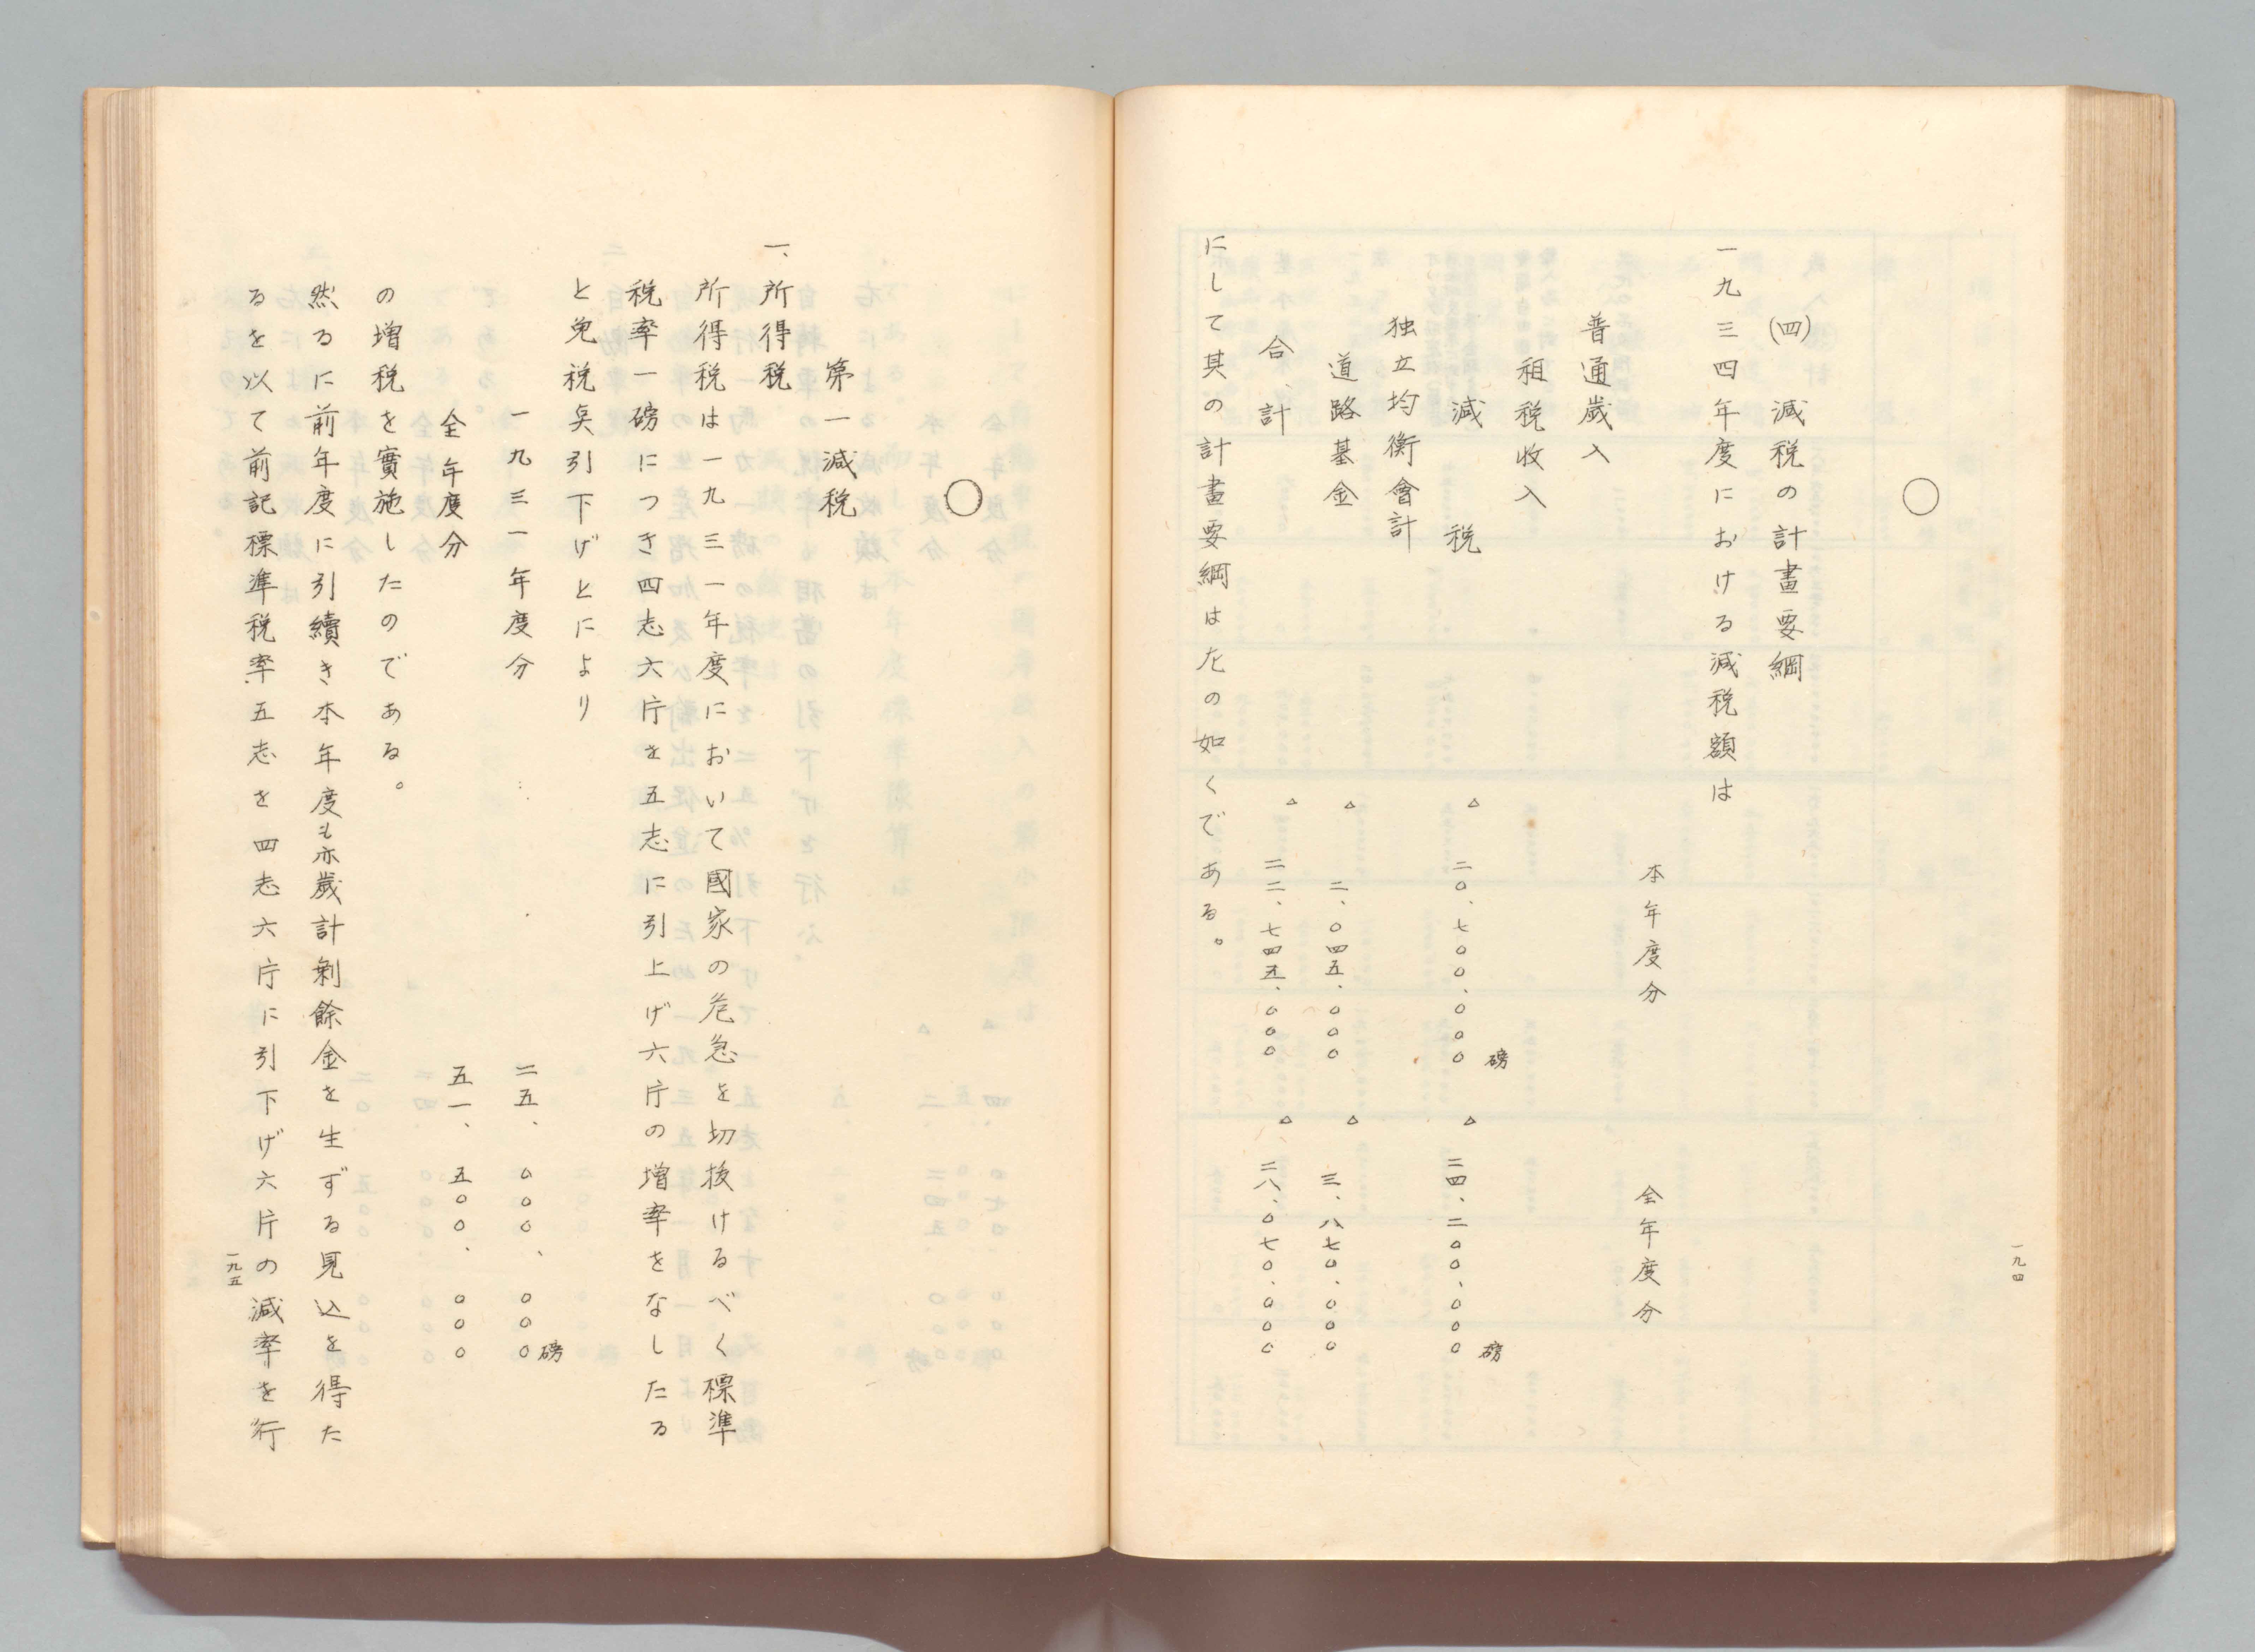 一九四
◯
(四) 減税の計畫要綱
一九三四年度における減税額は
本年度分 全年度分
普通歲入
租税收入
磅 磅
減税 △ 二〇、七〇〇、〇〇〇 △ 二四、二〇〇、〇〇〇
独立均衡會計
道路基金 △ 二、〇四五、〇〇〇 △ 三、八七〇、〇〇〇
合計 △ 二二、七四五、〇〇〇 △ 二八、〇七〇、〇〇〇
にして其の計畫要綱は左の如くである。
◯
第一減税
一、所得税
所得税は一九三一年度において國家の危急を切抜けるべく標準
税率一磅につき四志六庁を五志に引上げ六庁の增率をなしたる
と免税点引下げとにより
磅
一九三一年度分 二五、〇〇〇、〇〇〇
全年度分 五一、五〇〇、〇〇〇
の增税を實施したのである。
然るに前年度に引續き本年度も亦歲計剰餘金を生ずる見込を得た
るを以て前記標準税率五志を四志六庁に引下げ六片の減率を行
一九五